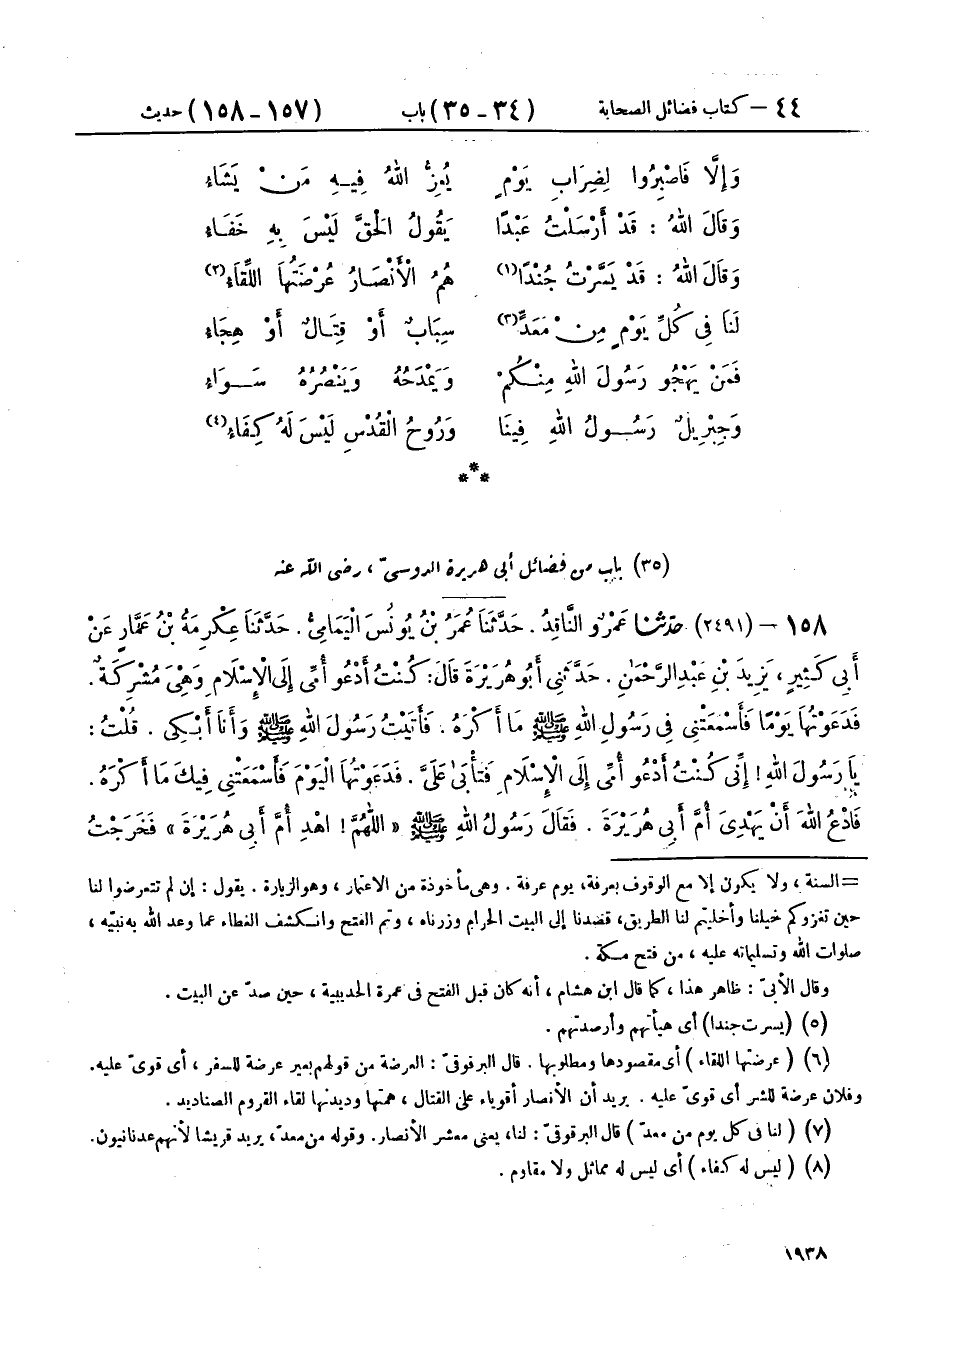 ٤٤ – كتاب فضائل الصحابة (٣٤ – ٣٥) باب (١٥٧ – ١٥٨) حديث
وَإِلَّا فَاصْبِرُوا لِضِرَابِ يَوْمٍ يُعِزُّ اللهُ فِيهِ مَنْ يَشَاءُ
وَقَالَ اللهُ : قَدْ أَرْسَلْتُ عَبْدًا يَقُولُ الْحَقَّ لَيْسَ بِهِ خَفَاءُ
وَقَالَ اللهُ : قَدْ يَسَّرْتُ جُنْدًا(١) هُمُ الْأَنْصَارُ عُرْضَتُهَا اللِّقَاءُ(٢)
لَنَا فِي كُلِّ يَوْمٍ مِنْ مَعَدٍّ(٣) سِبَابٌ أَوْ قِتَالٌ أَوْ هِجَاءُ
فَمَنْ يَهْجُو رَسُولَ اللهِ مِنْكُمْ وَيَمْدَحُهُ وَيَنْصُرُهُ سَوَاءُ
وَجِبْرِيلٌ رَسُولُ اللهِ فِينَا وَرُوحُ الْقُدْسِ لَيْسَ لَهُ كِفَاءُ(٤)
***
(٣٥) باب من فضائل أبى هريرة الدوسىّ ، رضى الله عنه
١٥٨ – (٢٤٩١) حَدَّثَنَا عَمْرٌو النَّاقِدُ . حَدَّثَنَا عُمَرُ بْنُ يُونُسَ الْيَمَامِىُّ . حَدَّثَنَا عِكْرِمَةُ بْنُ عَمَّارٍ عَنْ
أَبِى كَثِيرٍ ، يَزِيدَ بْنِ عَبْدِ الرَّحْمَنِ . حَدَّثَنِى أَبُو هُرَيْرَةَ قَالَ : كُنْتُ أَدْعُو أُمِّى إِلَى الْإِسْلَامِ وَهْىَ مُشْرِكَةٌ .
فَدَعَوْتُهَا يَوْمًا فَأَسْمَعَتْنِى فِى رَسُولِ اللهِ ﷺ مَا أَكْرَهُ . فَأَتَيْتُ رَسُولَ اللهِ ﷺ وَأَنَا أَبْكِى . قُلْتُ :
يَا رَسُولَ اللهِ ! إِنِّى كُنْتُ أَدْعُو أُمِّى إِلَى الْإِسْلَامِ فَتَأْبَىٰ عَلَىَّ . فَدَعَوْتُهَا الْيَوْمَ فَأَسْمَعَتْنِى فِيكَ مَا أَكْرَهُ .
فَادْعُ اللهَ أَنْ يَهْدِىَ أُمَّ أَبِى هُرَيْرَةَ . فَقَالَ رَسُولُ اللهِ ﷺ « اللّٰهُمَّ ! اهْدِ أُمَّ أَبِى هُرَيْرَةَ » فَخَرَجْتُ
= السنة ، ولا يكون إلا مع الوقوف بعرفة، يوم عرفة . وهى مأخوذة من الاعتمار ، وهو الزيارة . يقول : إن لم تتعرضوا لنا
حين تغزوكم خيلنا وأخليتم لنا الطريق، قصدنا إلى البيت الحرام وزرناه ، وتم الفتح وانكشف الغطاء عما وعد الله به نبيّه ،
صلوات الله وتسليماته عليه ، من فتح مكة .
وقال الأبىّ : ظاهر هذا ، كما قال ابن هشام ، أنه كان قبل الفتح فى عمرة الحديبية ، حين صدّ عن البيت .
(٥) (يسرت جندا) أى هيأتهم وأرصدتهم .
(٦) ( عرضتها اللقاء ) أى مقصودها ومطلوبها . قال البرقوقىّ : العرضة من قولهم بعير عرضة للسفر ، أى قوىّ عليه.
وفلان عرضة للشر أى قوىّ عليه . يريد أن الأنصار أقوياء على القتال ، همتها وديدنها لقاء القروم الصناديد .
(٧) ( لنا فى كل يوم من معدّ ) قال البرقوقىّ : لنا، يعنى معشر الأنصار. وقوله من معدّ، يريد قريشا لأنهم عدنانيون.
(٨) ( ليس له كفاء ) أى ليس له مماثل ولا مقاوم .
١٩٣٨